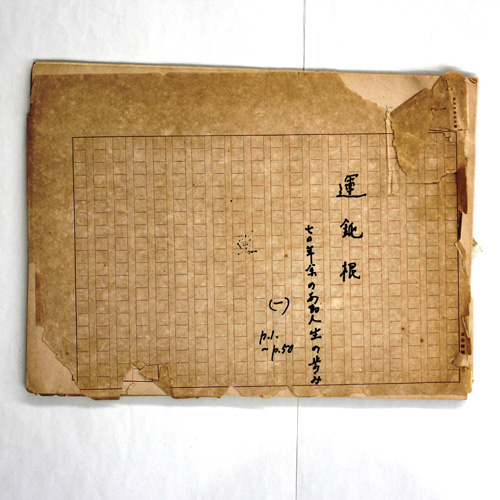 運鈍根
七〇年余のある人生の歩み
(一)
p.1.
~p.50